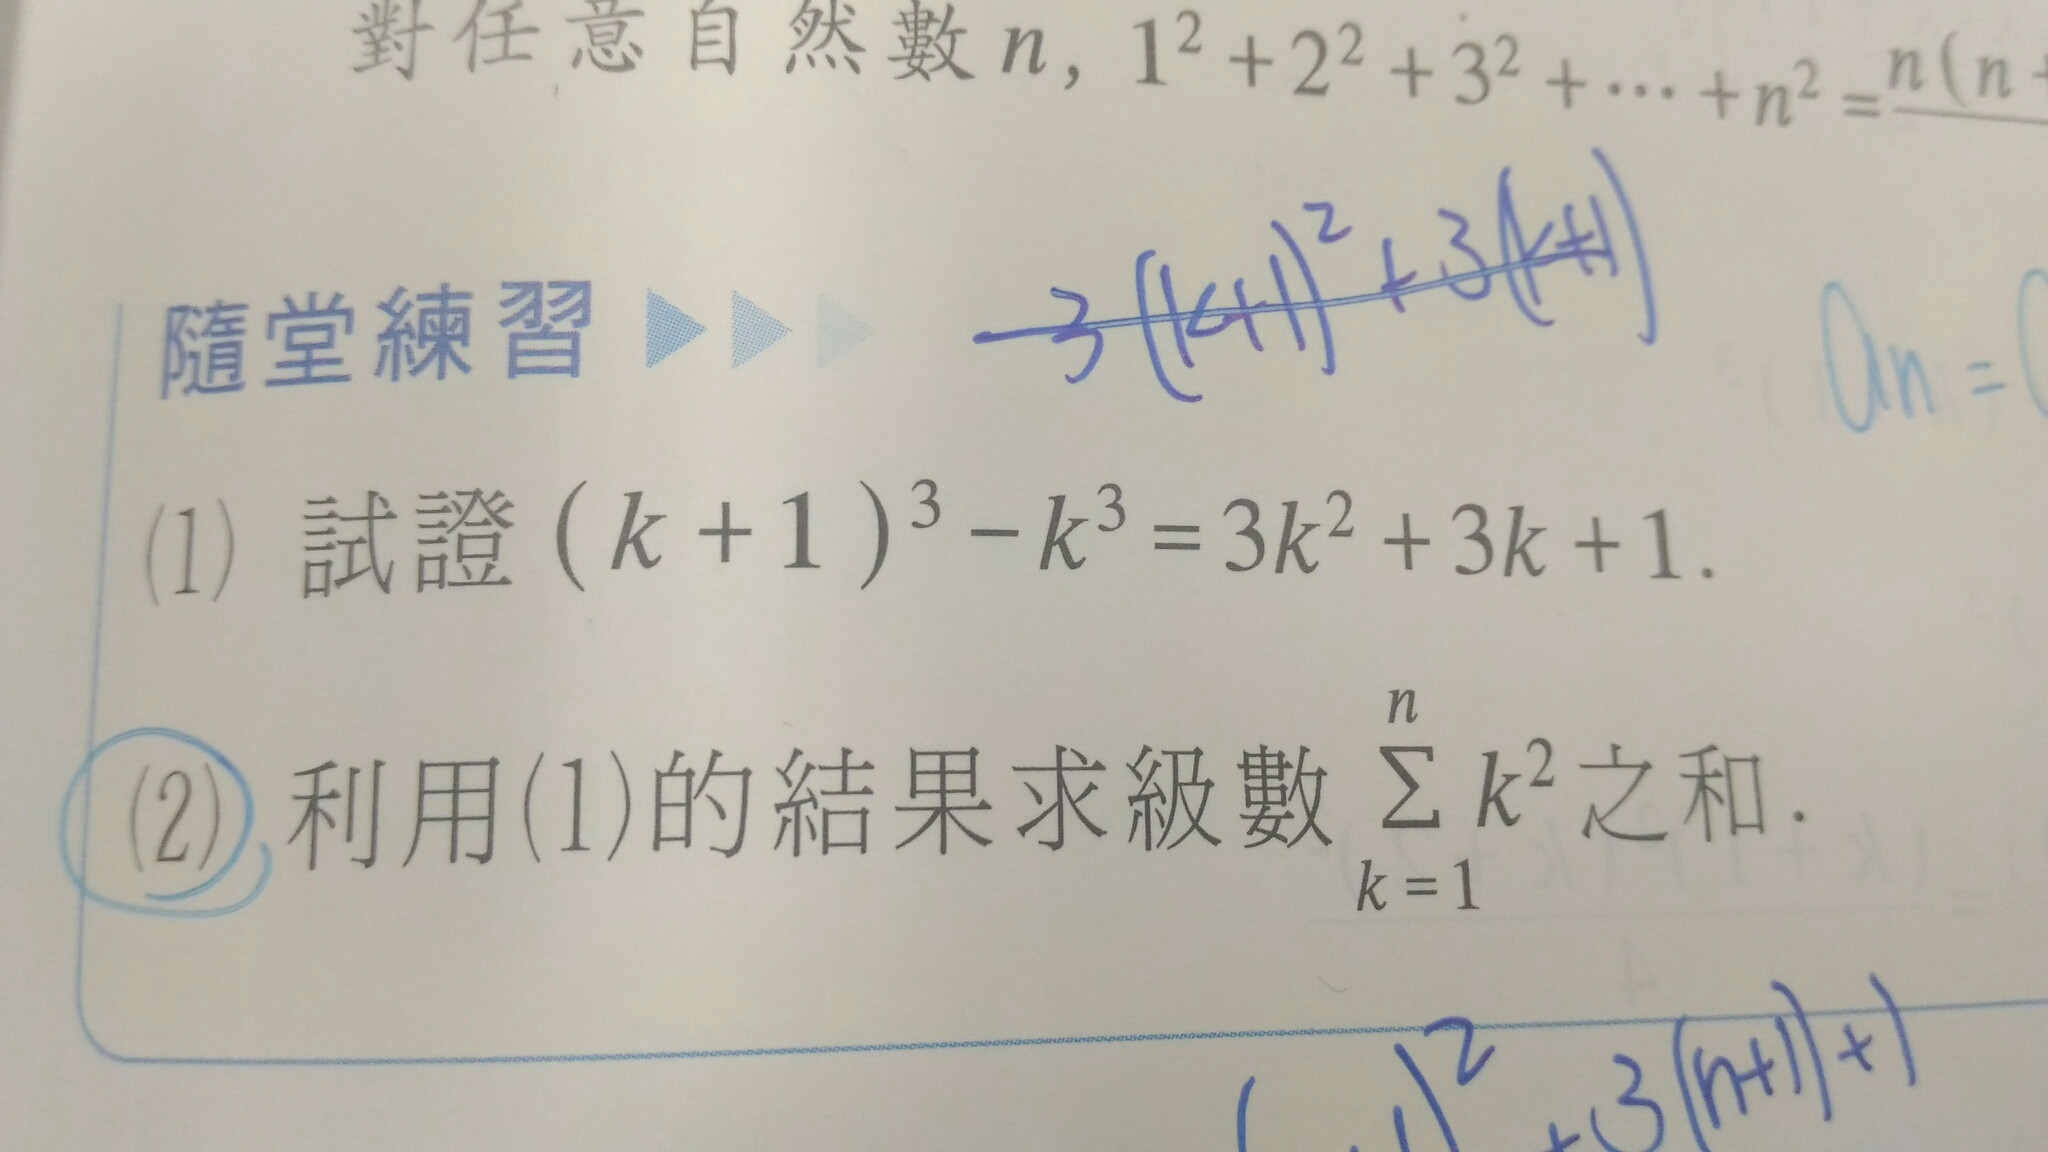 對任意自然數n, 1² + 2² + 3² + ⋯ + n² = n(n +
3(k+1)² + 3(k+1)
隨堂練習
an =
(1) 試證 (k + 1)³ − k³ = 3k² + 3k + 1.
(2) 利用(1)的結果求級數 \sum_{k=1}^{n} k² 之和.
)² + 3(n+1) + 1